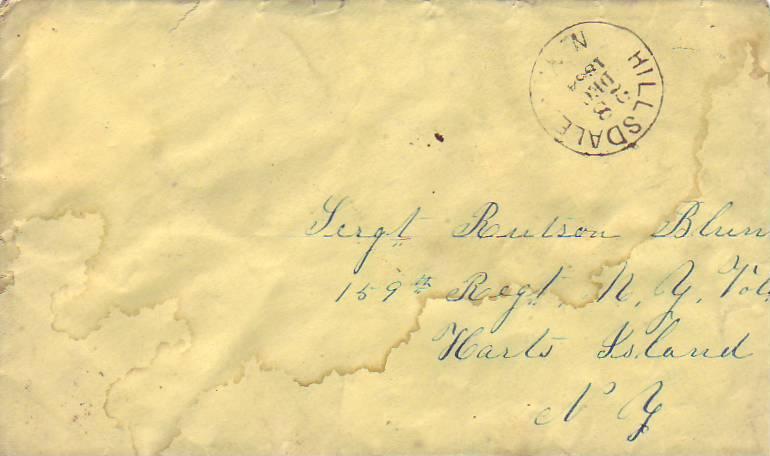 HILLSDALE N.Y.
DEC
28
1864
Sergt Rutson Blun
159th Regt, N, Y, Vol,
Harts Island
N Y